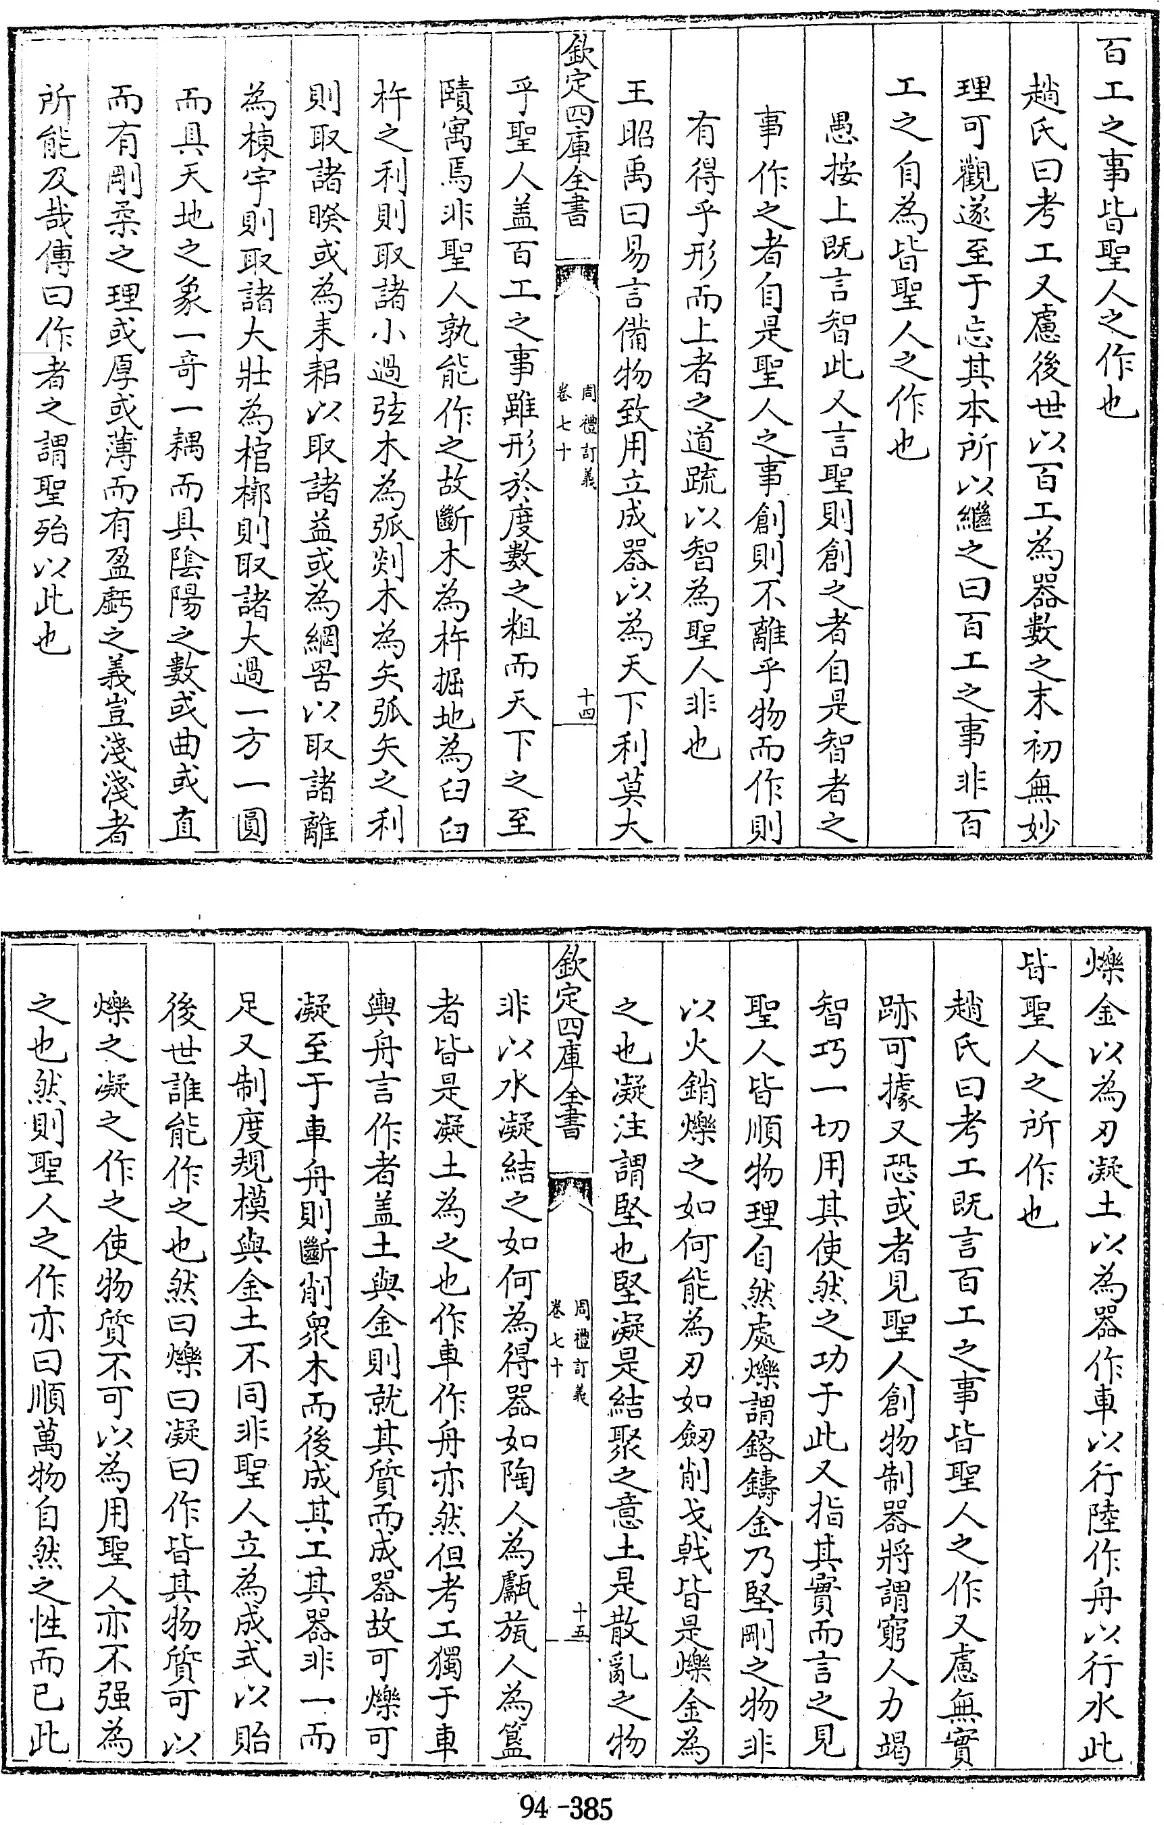 百工之事皆聖人之作也
趙氏曰考工又慮後世以百工為器數之末初無妙
理可觀遂至于忘其本所以繼之曰百工之事非百
工之自為皆聖人之作也
愚按上既言智此又言聖則創之者自是智者之
事作之者自是聖人之事創則不離乎物而作則
有得乎形而上者之道疏以智為聖人非也
王昭禹曰易言備物致用立成器以為天下利莫大
欽定四庫全書
周禮訂義
卷七十
十四
乎聖人蓋百工之事雖形於度數之粗而天下之至
賾寓焉非聖人孰能作之故斷木為杵掘地為臼臼
杵之利則取諸小過弦木為弧剡木為矢弧矢之利
則取諸睽或為耒耜以取諸益或為網罟以取諸離
為棟宇則取諸大壯為棺槨則取諸大過一方一圓
而具天地之象一奇一耦而具陰陽之數或曲或直
而有剛柔之理或厚或薄而有盈虧之義豈淺淺者
所能及哉傳曰作者之謂聖殆以此也
爍金以為刃凝土以為器作車以行陸作舟以行水此
皆聖人之所作也
趙氏曰考工既言百工之事皆聖人之作又慮無實
跡可據又恐或者見聖人創物制器將謂窮人力竭
智巧一切用其使然之功于此又指其實而言之見
聖人皆順物理自然處爍謂鎔鑄金乃堅剛之物非
以火銷爍之如何能為刃如劒削戈戟皆是爍金為
之也凝注謂堅也堅凝是結聚之意土是散亂之物
欽定四庫全書
周禮訂義
卷七十
十五
非以水凝結之如何為得器如陶人為甗旊人為簋
者皆是凝土為之也作車作舟亦然但考工獨于車
輿舟言作者蓋土與金則就其質而成器故可爍可
凝至于車舟則斷削衆木而後成其工其器非一而
足又制度規模與金土不同非聖人立為成式以貽
後世誰能作之也然曰爍曰凝曰作皆其物質可以
爍之凝之作之使物質不可以為用聖人亦不强為
之也然則聖人之作亦曰順萬物自然之性而已此
94-385